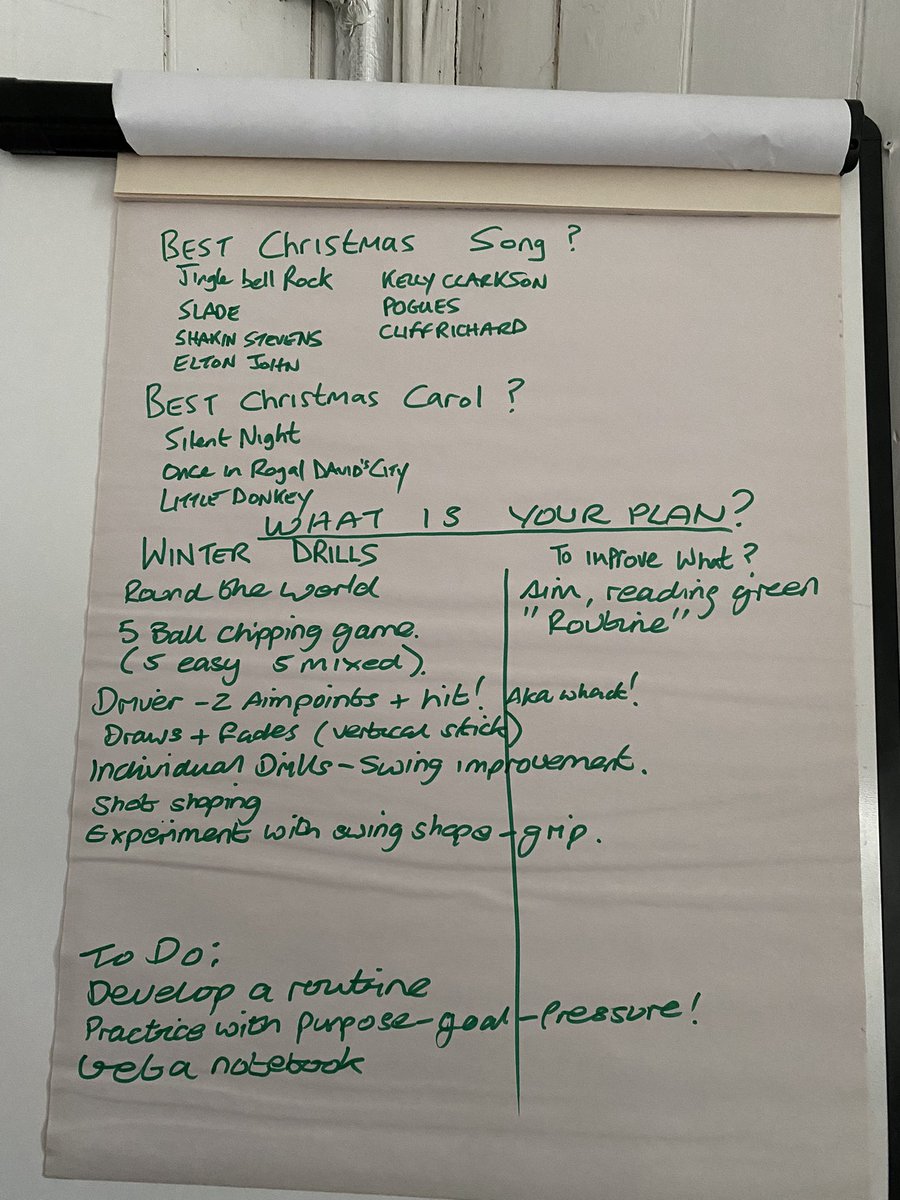 BEST Christmas Song?
Jingle bell Rock KELLY CLARKSON
SLADE POGUES
SHAKIN STEVENS CLIFF RICHARD
ELTON JOHN
BEST Christmas Carol?
Silent Night
Once in Royal DAVID'S CITY
LITTLE DONKEY
WHAT IS YOUR PLAN?
WINTER DRILLS To improve what?
Round the world Aim, reading green
"Routine"
5 Ball chipping game.
(5 easy 5 mixed).
Driver - 2 Aimpoints + hit! Aka whack!
Draws + fades (vertical stick)
Individual Drills - Swing improvement.
Shot shaping
Experiment with swing shape - grip.
To Do:
Develop a routine
Practice with purpose - goal - Pressure!
Get a notebook